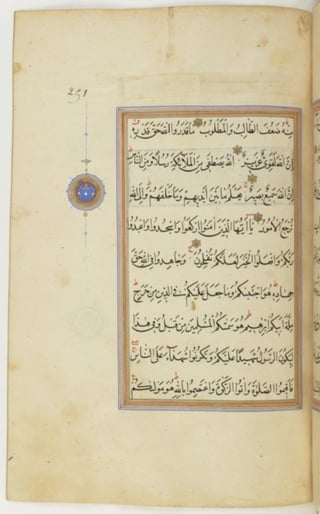 251
مِنْهُ ضَعُفَ الطَّالِبُ وَالْمَطْلُوبُ مَا قَدَرُوا اللَّهَ حَقَّ قَدْرِهِ
إِنَّ اللَّهَ لَقَوِيٌّ عَزِيزٌ اللَّهُ يَصْطَفِي مِنَ الْمَلَائِكَةِ رُسُلًا وَمِنَ النَّاسِ
إِنَّ اللَّهَ سَمِيعٌ بَصِيرٌ يَعْلَمُ مَا بَيْنَ أَيْدِيهِمْ وَمَا خَلْفَهُمْ وَإِلَى اللَّهِ
تُرْجَعُ الْأُمُورُ يَا أَيُّهَا الَّذِينَ آمَنُوا ارْكَعُوا وَاسْجُدُوا وَاعْبُدُوا
رَبَّكُمْ وَافْعَلُوا الْخَيْرَ لَعَلَّكُمْ تُفْلِحُونَ وَجَاهِدُوا فِي اللَّهِ حَقَّ
جِهَادِهِ هُوَ اجْتَبَاكُمْ وَمَا جَعَلَ عَلَيْكُمْ فِي الدِّينِ مِنْ حَرَجٍ
مِلَّةَ أَبِيكُمْ إِبْرَاهِيمَ هُوَ سَمَّاكُمُ الْمُسْلِمِينَ مِنْ قَبْلُ وَفِي هَذَا
لِيَكُونَ الرَّسُولُ شَهِيدًا عَلَيْكُمْ وَتَكُونُوا شُهَدَاءَ عَلَى النَّاسِ
فَأَقِيمُوا الصَّلَوةَ وَآتُوا الزَّكَوةَ وَاعْتَصِمُوا بِاللَّهِ هُوَ مَوْلَاكُمْ